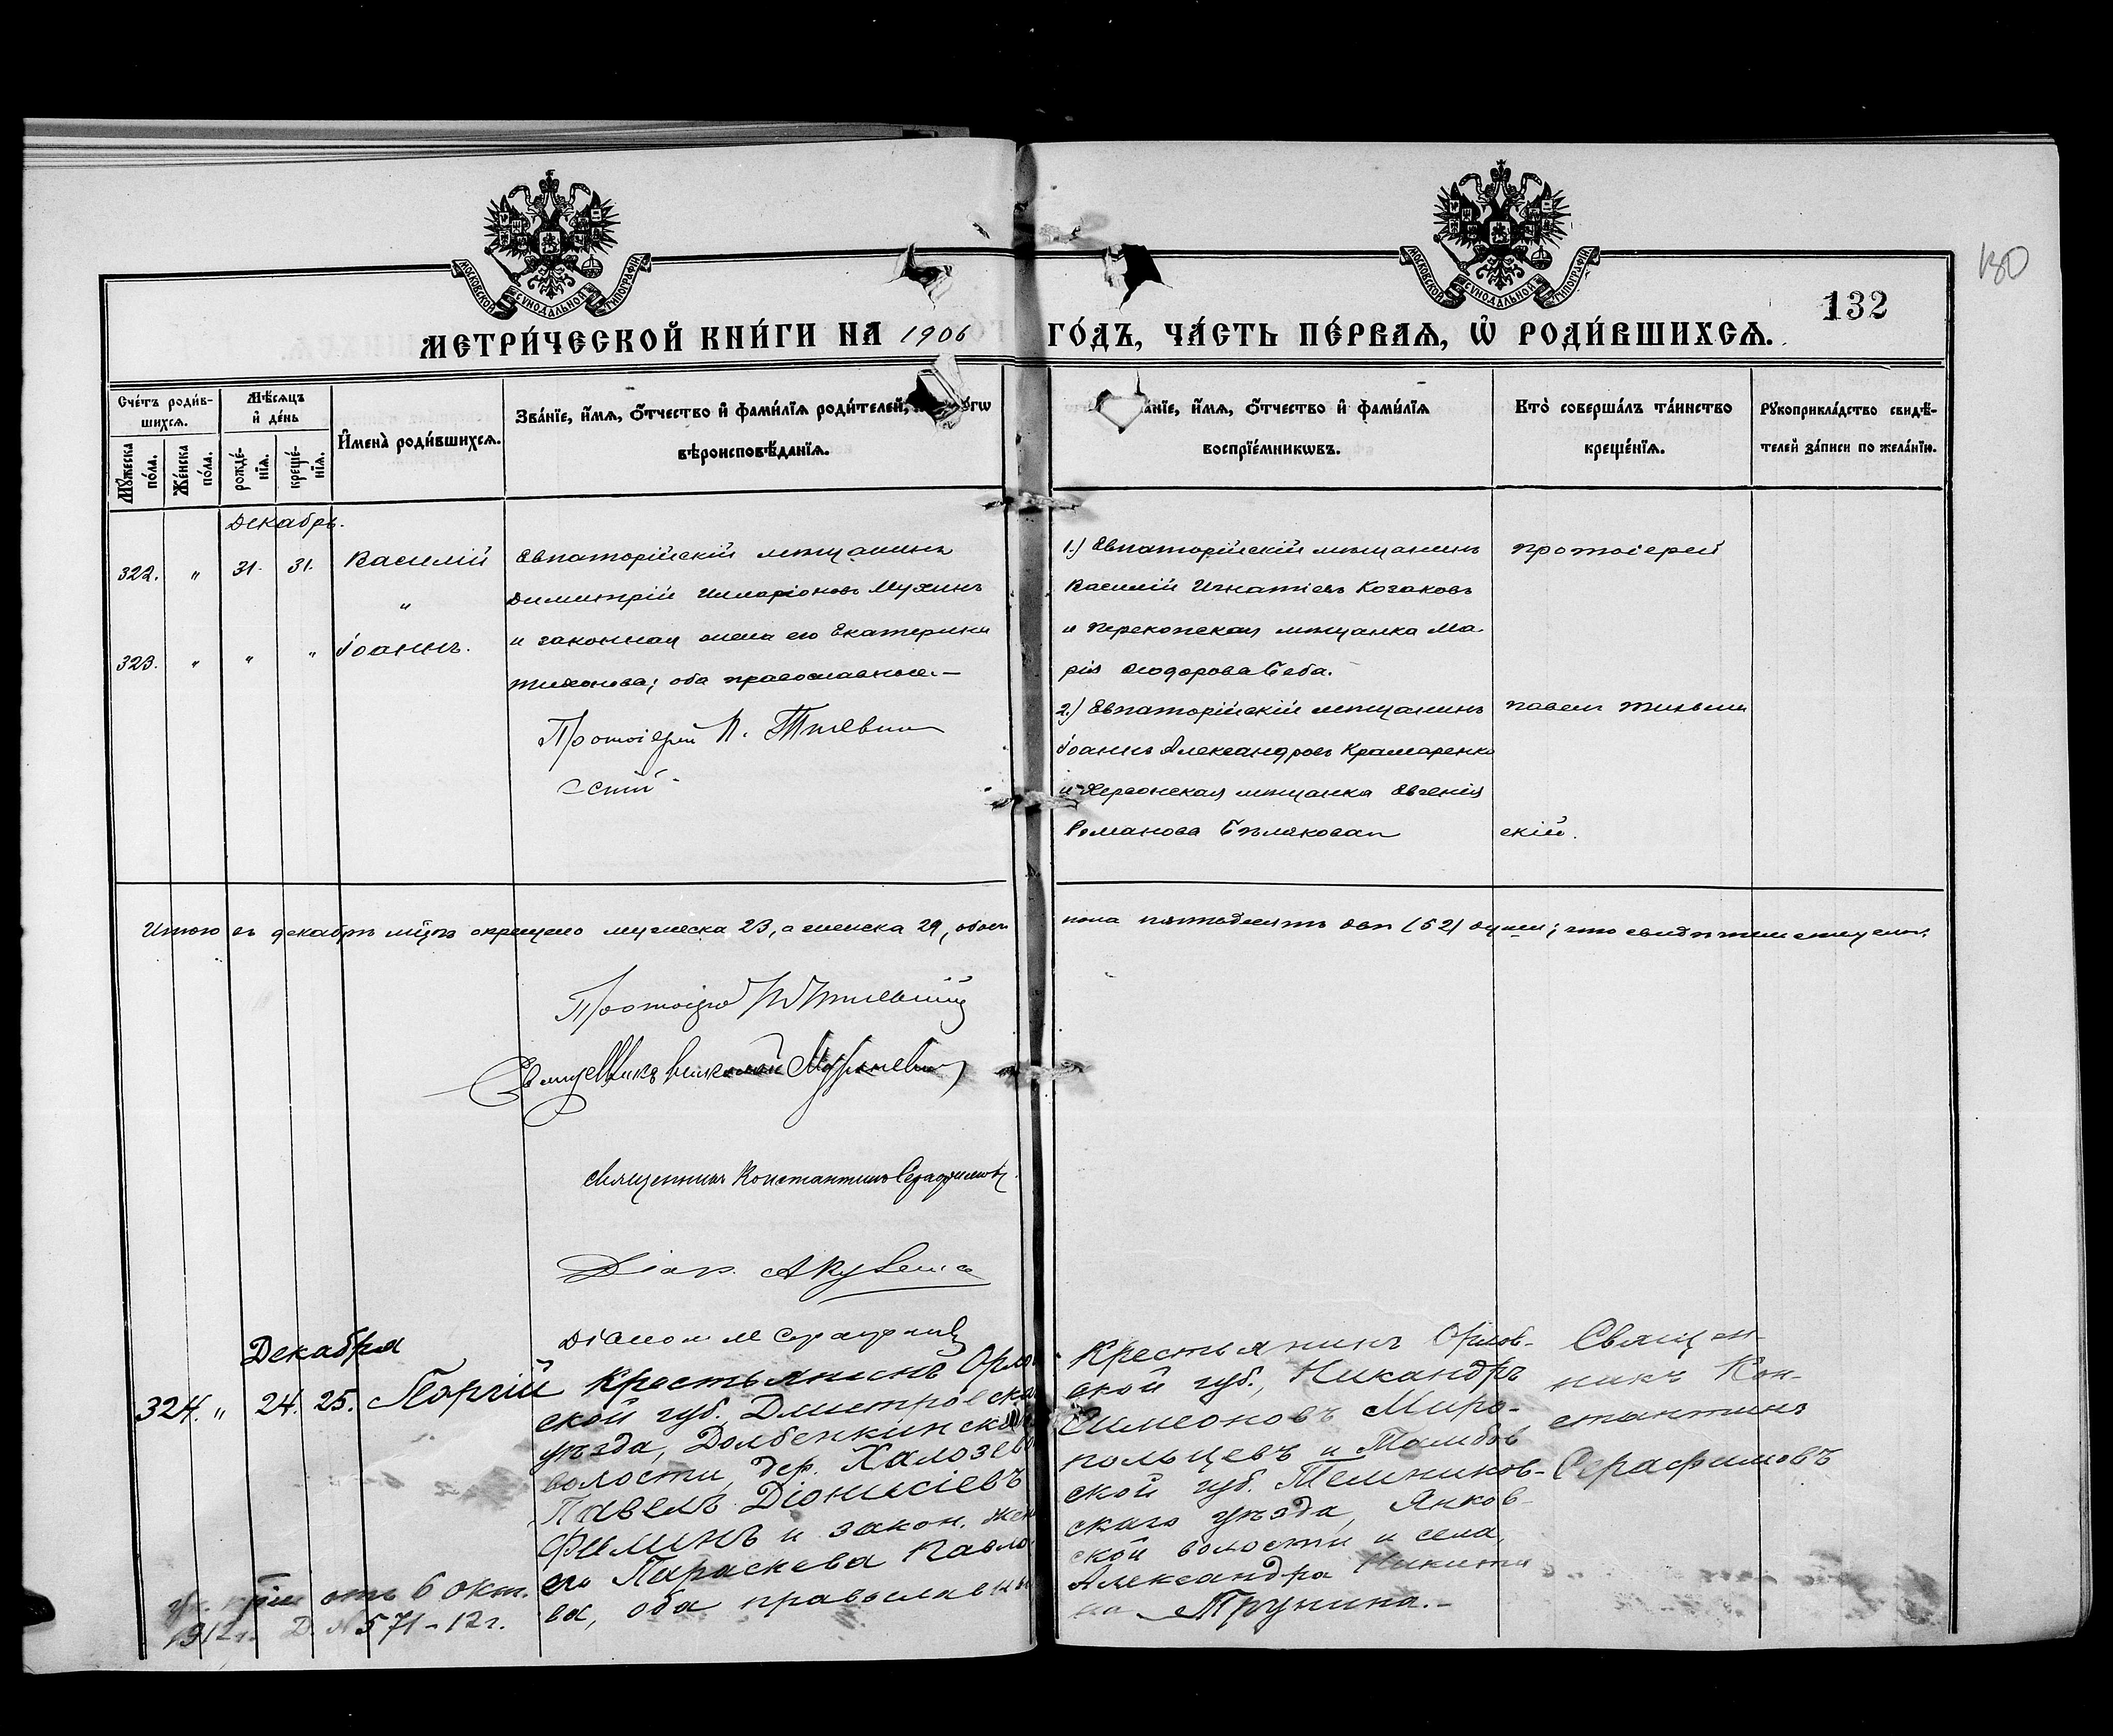 МОСКОВСКОЙ СѴНОДАЛЬНОЙ ТИПОГРАФІИ
МОСКОВСКОЙ СѴНОДАЛЬНОЙ ТИПОГРАФІИ
130
132
МЕТРИ́ЧЕСКОЙ КНИ́ГИ НА 1906 ГО́ДЪ, ЧА́СТЬ ПЕ́РВАѦ, Ѡ҆ РОДИ́ВШИХСѦ.
Сче́тъ роди́в-
шихсѧ.
Мꙋ́жеска по́ла.
Же́нска по́ла.
Мѣ́сѧцъ
и҆ де́нь
рожде́-
нїѧ.
креще́-
нїѧ.
И҆мена̀ роди́вшихсѧ.
Зва́нїе, и҆́мѧ, ѻ҆́тчество и҆ фами́лїѧ роди́телей,
вѣроисповѣ́данїѧ.
а́нїе, и҆́мѧ, ѻ҆́тчество и҆ фами́лїѧ
воспрїе́мникѡвъ.
Кто̀ соверша́лъ та́инство
креще́нїѧ.
Рꙋкоприкла́дство свидѣ́-
телей за́писи по жела́нїю.
Декабрь.
322. " 31. 31. Василій
"
323. " " " Іоаннъ.
Евпаторійскій мѣщанинъ
Димитрій Илларіоновъ Мухинъ
и законная жена его Екатерина
Тихонова; оба православные.—
Протоіерей П. Тихвин
скій
1.) Евпаторійскій мѣщанинъ
Василій Игнатіевъ Козаковъ
и Перекопская мѣщанка Ма
рія Ѳеодорова
2.) Евпаторійскій мѣщанинъ
Іоаннъ Александровъ Крамаренко
и Херсонская мѣщанка Евгенія
Романова Бѣлякова
протоіерей
Павелъ Тихвин
скій.
Итого въ декабрѣ мцѣ крещено мужеска 23, а женска 29, обоего
пола пятьдесятъ двѣ (52) души; что свидѣтельствуемъ:
Протоіерей П Тихвинскій
Священникъ Николай
Священникъ Константинъ Серафимовъ.
Діак.
Діаконъ
Декабря
324. " 24. 25. Георгій
Крестьянинъ Орлов
ской губ. Дмитровска
уѣзда, Долбенкинской
волости, дер. Халзево
Павелъ Діонисіевъ
Филинъ и закон. жен
его Параскева Павло
ва, оба православны
Крестьянинъ Орлов-
ской губ., Никандръ
Симеоновъ Миро-
польцевъ и Тамбов
ской губ. Темников-
скаго уѣзда, Янков-
ской волости и села,
Александра Никити
на Трунина.—
Священ-
никъ Кон-
стантинъ
Серафимовъ
отъ 6 окт.
1912 г. Д. № 571-12 г.